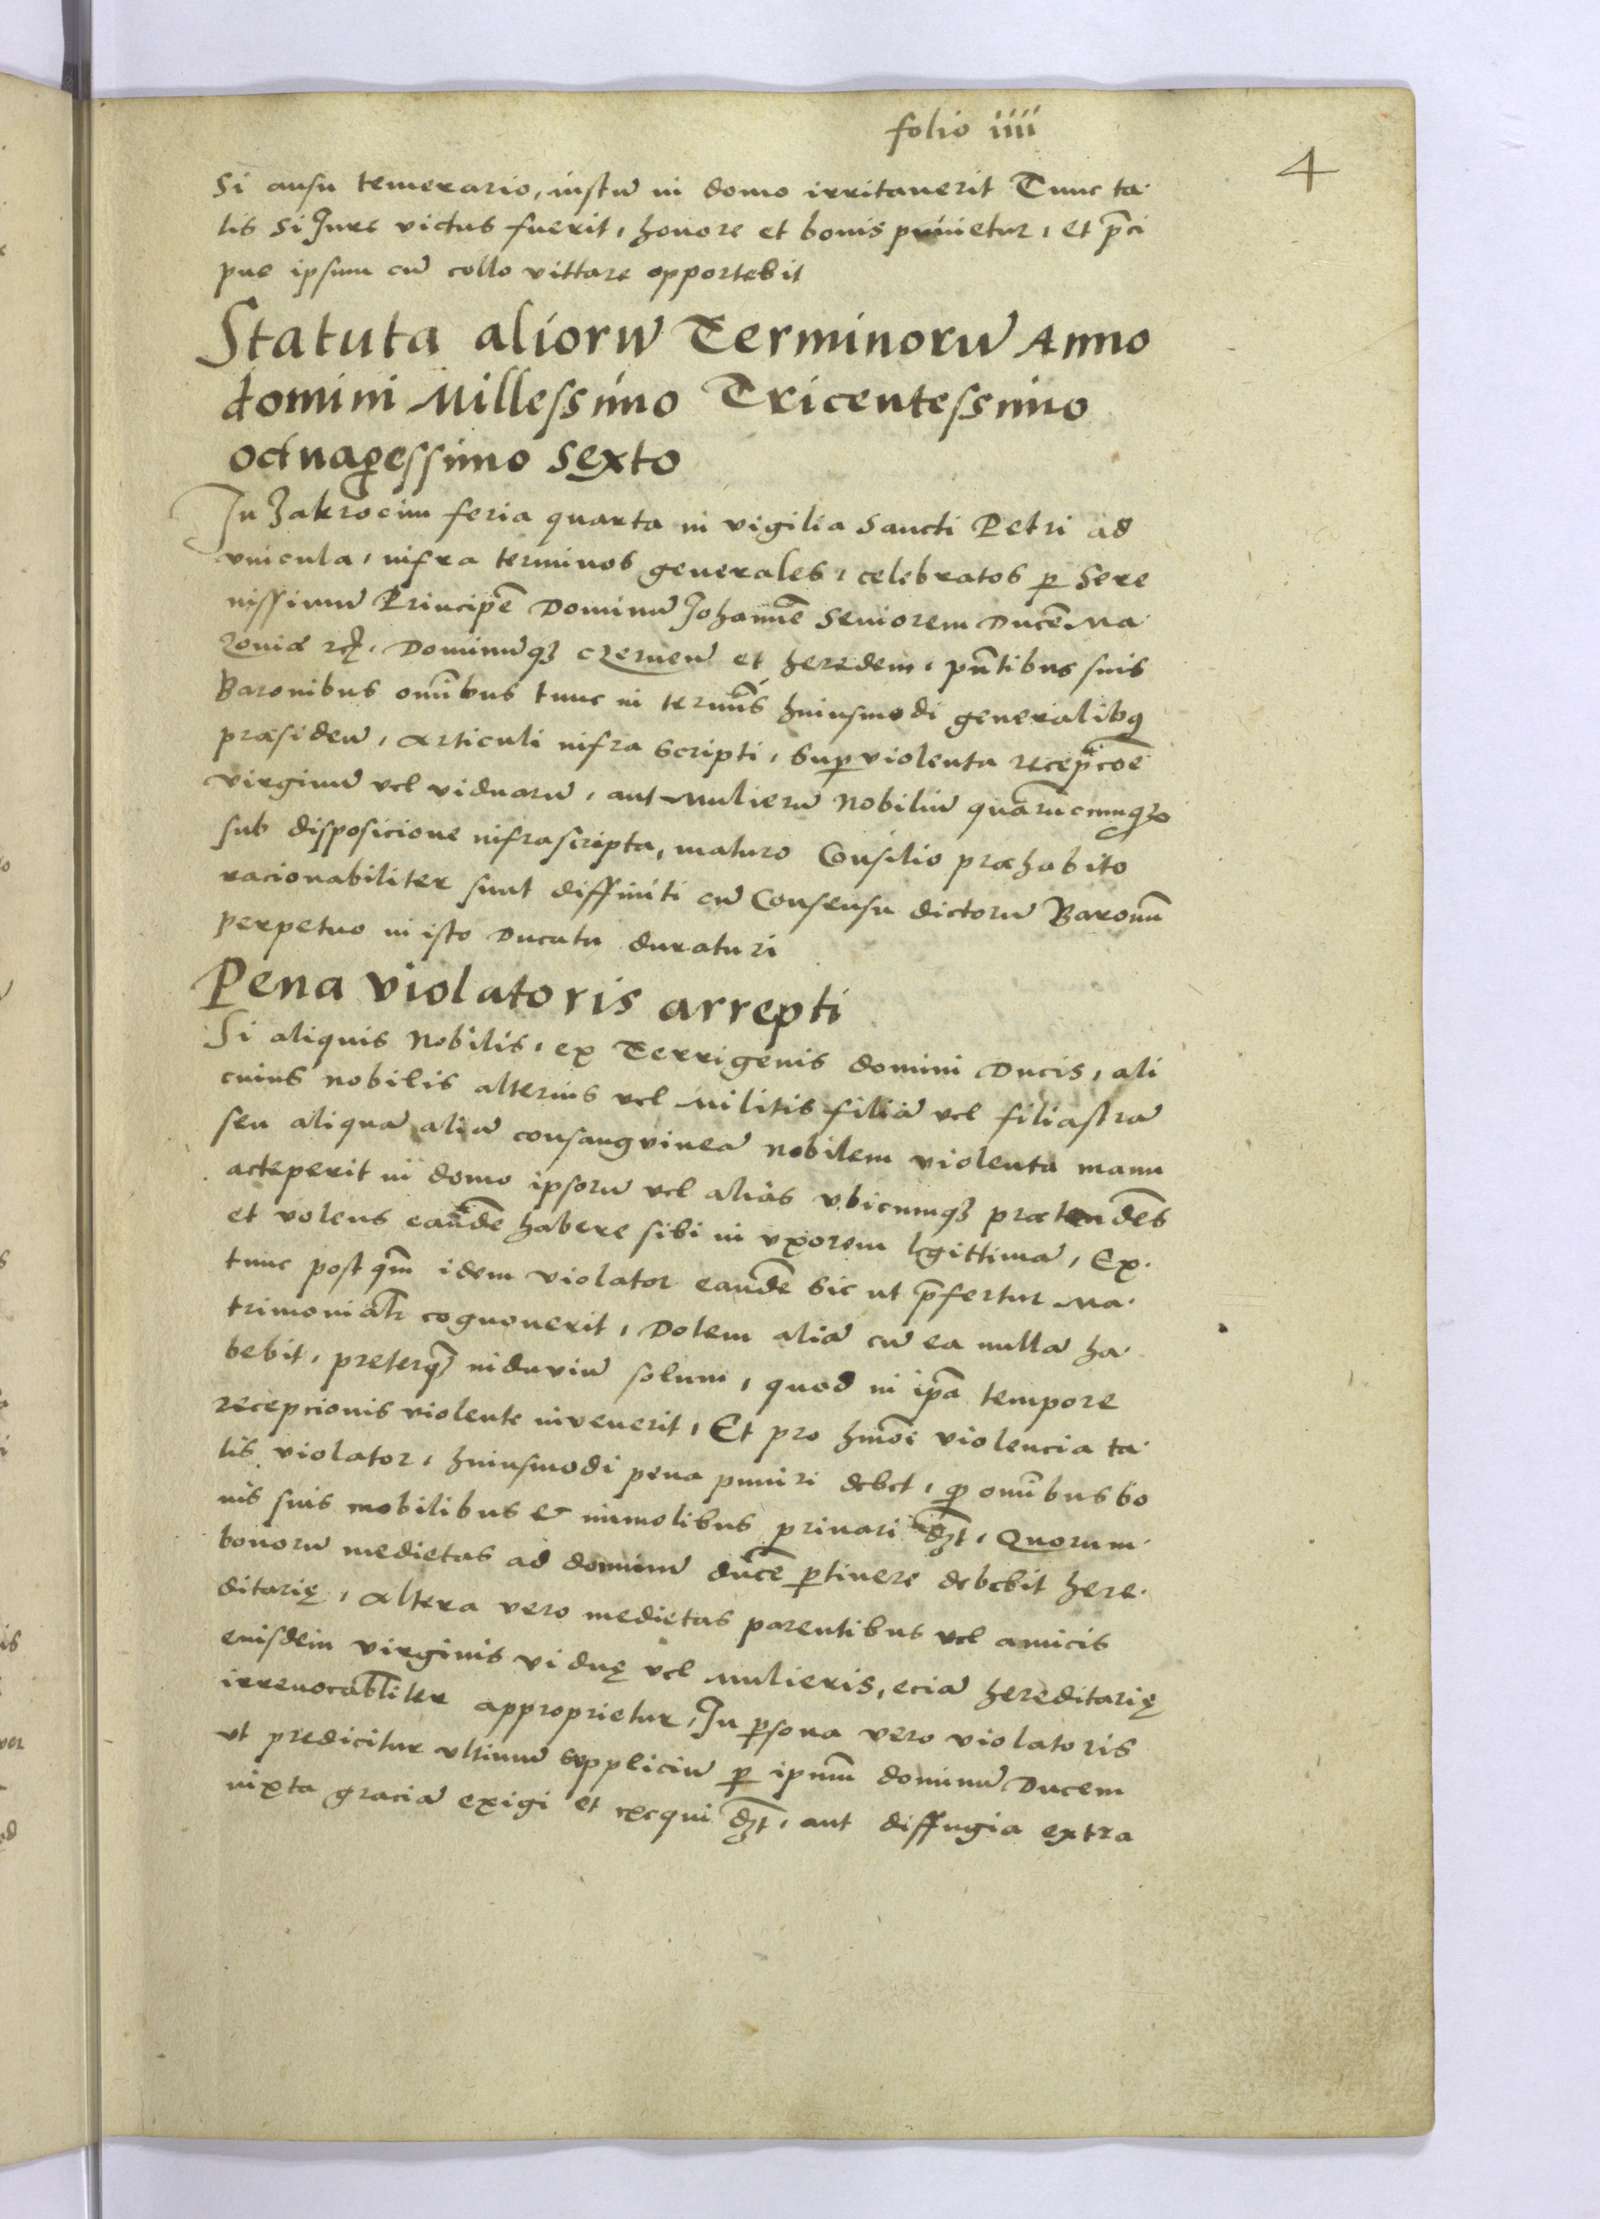 folio iiii
4
Si ausu temerario, iustū in domo irritauerit Tunc ta·
lis Si Jure victus fuerit, honore et bonis punietur, et p̄ci
pue ipsum cū collo vittare opportebit
Statuta aliorū Terminorū Anno
domini Millessimo Tricentessimo
octuagessimo sexto
In Zakrocim feria quarta in vigilia Sancti Petri ad
vincula, infra terminos generales, celebratos ꝑ Sere
nissimū Principē Dominū Johannē Seniorem Ducē Ma·
zouiæ ꝛc̨, Dominūqꝫ czernen̄ et heredem, pn̄tibus suis
Baronibus om̄ibus tunc in termīs huiusmodi generalibꝰ
præsiden̄, Articuli infra scripti, suꝑ violenta recepc̄oē
virginū vel viduarū, aut Mulierū Nobiliū quarūcumqꝫ
sub disposicione infrascripta, maturo Consilio præhabito
racionabiliter sunt diffiniti cū Consensu dictorū Baronū
perpetuo in isto Ducatu duraturi
Pena violatoris arrepti
Si aliquis Nobilis, ex Terrigenis domini Ducis, ali
cuius nobilis alterius vel Militis filiā vel filiastrā
seu aliquā aliā consangvineā nobilem violenta manu
acceperit in domo ipsorū vel aliàs vbicumqꝫ prætendēs
et volens eandē habere sibi in vxorem legittimā, Ex·
tunc post qm̄ idem violator eandē sic ut p̄fertur Ma·
trimoniālr cognouerit, Dotem aliā cū ea nullā ha·
bebit, preterqꝫ induviū solum, quod in ip̄a tempore
recepcionis violente invenerit, Et pro hmōi violencia ta·
lis violator, huiusmodi pena puniri debet, ꝙ om̄ibus bo
nis suis mobilibus & immolibus priuari dꝫt, Quorum·
bonorū medietas ad dominū ducē ꝑtinere debebit here·
ditarię, Altera vero medietas parentibus vel amicis
eiusdem virginis viduę vel Mulieris, eciā hereditarię
irreuocab̄liter approprietur, In ꝑsona vero violatoris
vt predicitur vltimū suppliciū ꝑ ipsum dominū Ducem
iuxta graciā exigi et exequi dꝫt, aut diffugia extra